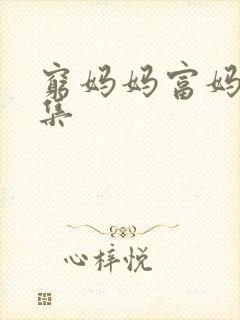 穷妈妈富妈
集
心梓悦